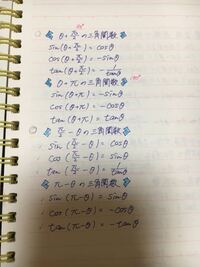 90°
① θ+π/2の三角関数
sin(θ+π/2)=cosθ
cos(θ+π/2)=-sinθ
tan(θ+π/2)=-1/tanθ
180°
θ+πの三角関数
sin(θ+π)=-sinθ
cos(θ+π)=-cosθ
tan(θ+π)=tanθ
② π/2-θの三角関数
sin(π/2-θ)=cosθ
cos(π/2-θ)=sinθ
tan(π/2-θ)=1/tanθ
π-θの三角関数
sin(π-θ)=sinθ
cos(π-θ)=-cosθ
tan(π-θ)=-tanθ